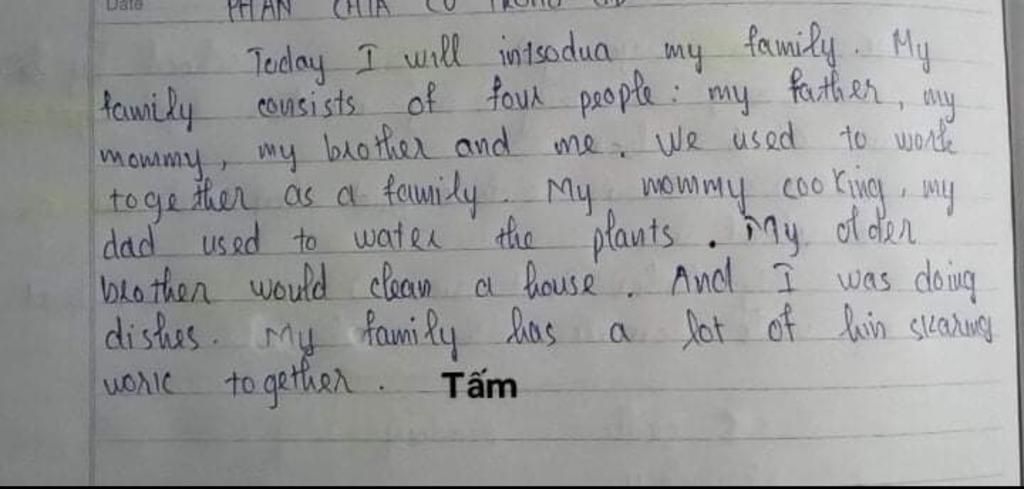 Date PHÂN CHIA CÓ TRONG
Today I will intsodua my family. My
family consists of four people: my father, my
mommy, my brother and me. We used to work
together as a family. My mommy cooking, my
dad used to water the plants. My older
brother would clean a house. And I was doing
dishes. My family has a lot of hin sharing
work together. Tấm